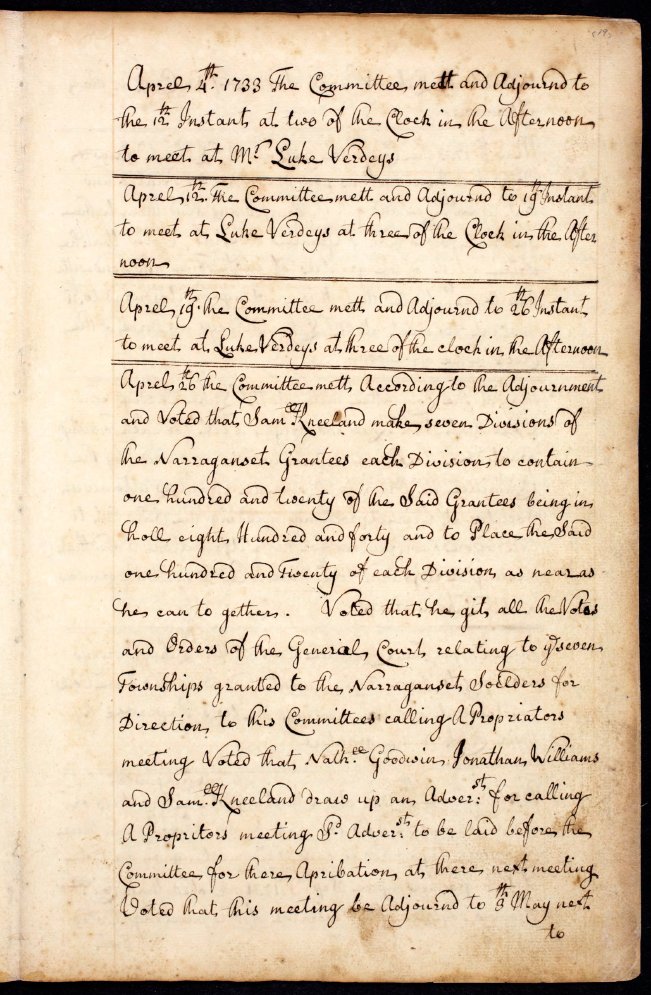 Aprel 4th 1733 The Committee mett and Adjournd to
the 12th Instant at two of the Clock in the Afternoon
to meet at Mr Luke Verdeys
Aprel 12th. The Committee mett and Adjournd to 19th Instant
to meet at Luke Verdeys at three of the Clock in the After
noon
Aprel 19th. the Committee mett and Adjournd to 26th Instant
to meet at Luke Verdeys at three of the clock in the Afternoon
Aprel 26th the Committee mett According to the Adjournment
and Voted that Samll Kneeland make seven Divisions of
the Narraganset Grantees each Division to contain
one hundred and twenty of the Said Grantees being in
holl eight Hundred and forty and to Place the Said
one hundred and Twenty of each Division as near as
he can to gether. Voted that he git all the Votes
and Orders of the General Court relating to ye seven
Townships granted to the Narraganset Soelders for
Direction to this Committees calling A Propriators
meeting Voted that Nathll. Goodwin Jonathan Williams
and Samll. Kneeland draw up an Adverst. for calling
A Propritors meeting Sd Adverst. to be laid before the
Committee for there Apribation at there next meeting
Voted that this meeting be Adjournd to 3th May next
to